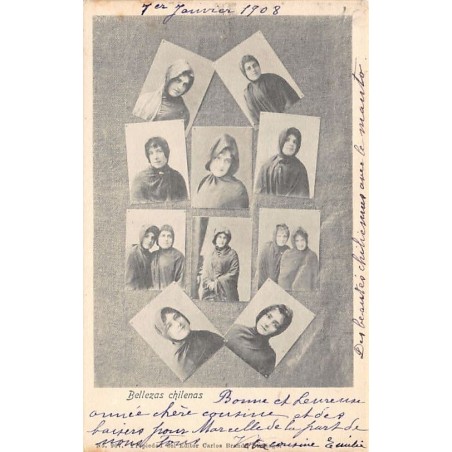 1er Janvier 1908
Des beautés chiliennes avec le manto.
Bellezas chilenas
Bonne et heureuse
année chère cousine et des
baisers pour Marcelle de la part de
nous tous Ta cousine Emilie
Propiedad del Editor Carlos